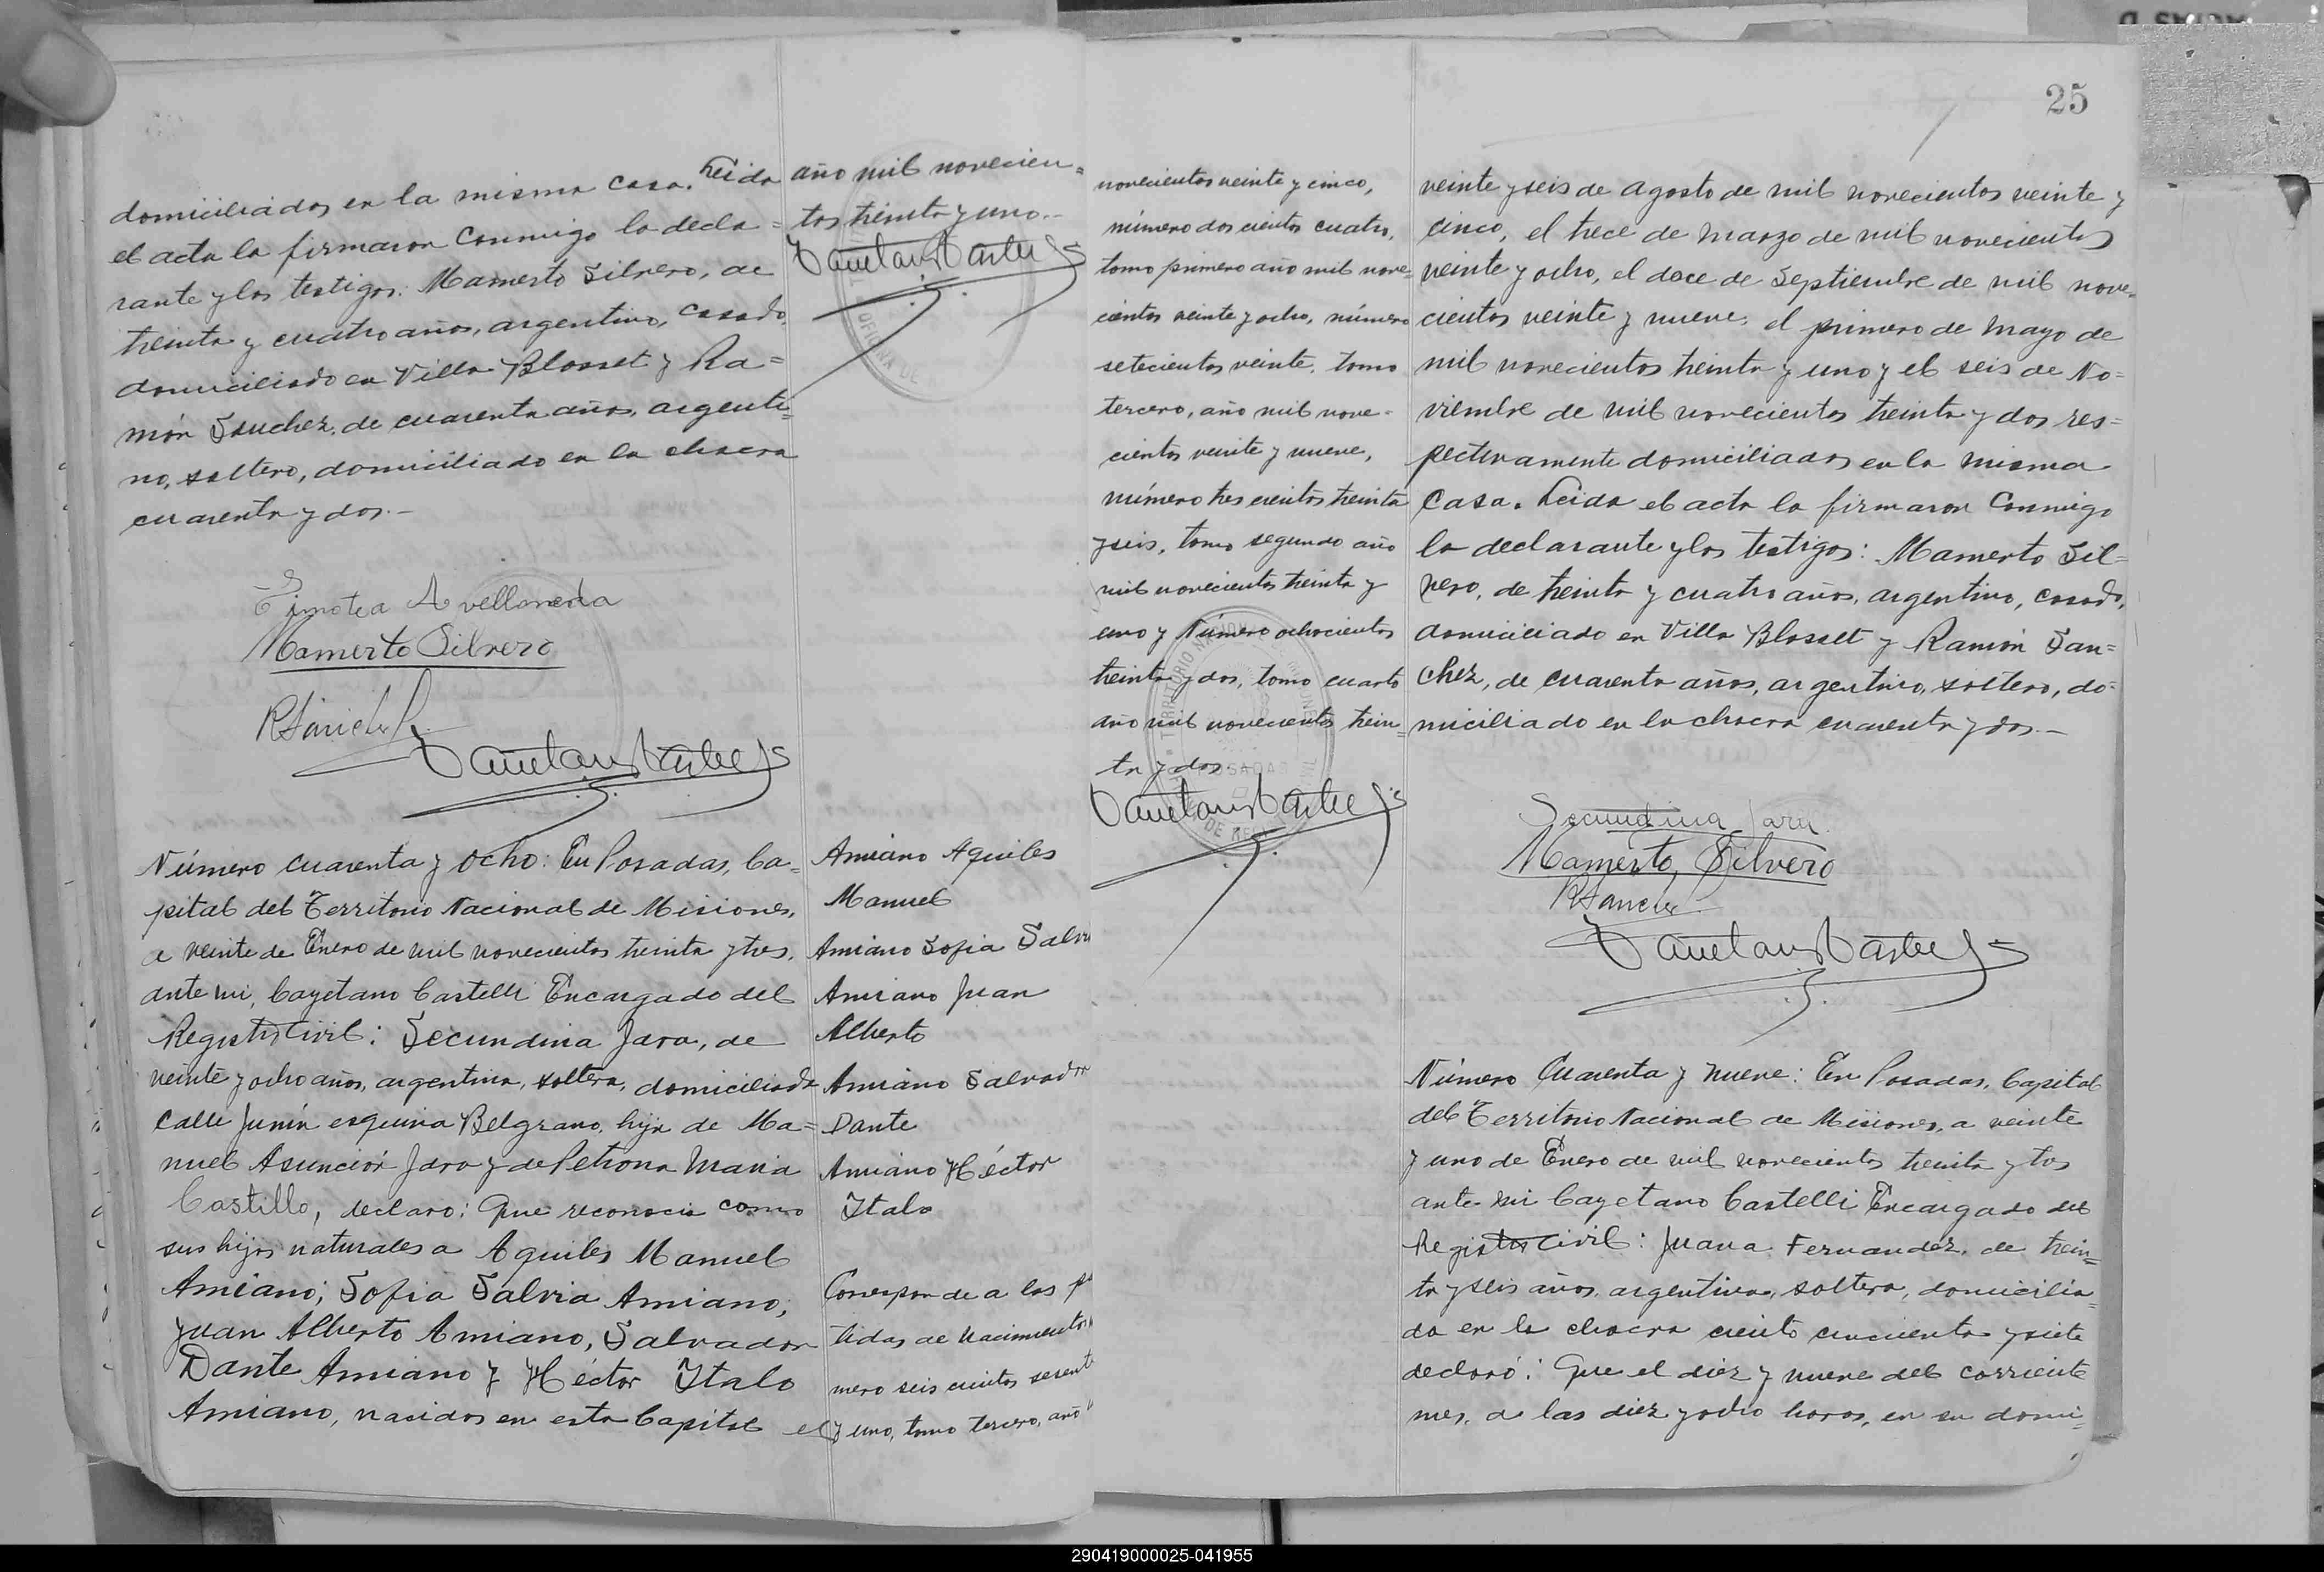 domiciliados en la misma casa. Leida
el acta la firmaron conmigo la decla=
rante y los testigos: Mamerto Silvero, de
treinta y cuatro años, argentino, casado,
domiciliado en Villa Blosset y Ra=
món Sanchez, de cuarenta años, argenti=
no, soltero, domiciliado en la chacra
cuarenta y dos.-
Timotea Avellaneda
Mamerto Silvero
RSanchez
año mil novecien=
tos treinta y uno.-
OFICINA DE
Número cuarenta y ocho: En Posadas, Ca=
pital del Territorio Nacional de Misiones,
a veinte de Enero de mil novecientos treinta y tres,
ante mi, Cayetano Castelli Encargado del
Registro Civil: Secundina Jara, de
veinte y ocho años, argentina, soltera, domiciliada
calle Junín esquina Belgrano, hija de Ma=
nuel Asunción Jara y de Petrona Maria
Castillo, declaro: Que reconocia como
sus hijos naturales a Aquiles Manuel
Amiano; Sofia Salvia Amiano;
Juan Alberto Amiano, Salvador
Dante Amiano y Héctor Italo
Amiano, nacidos en esta Capital el
Amiano Aquiles
Manuel
Amiano Sofia Salvi
Amiano Juan
Alberto
Amiano Salvador
Dante
Amiano Héctor
Italo
Corresponde a las p
tidas de nacimiento
mero seis cientos sesent
y uno, tomo tercero, año
novecientos veinte y cinco,
número dos cientos cuatro,
tomo primero año mil nove=
cientos veinte y ocho, número
setecientos veinte, tomo
tercero, año mil nove-
cientos veinte y nueve,
número tres cientos treinta
y seis, tomo segundo año
mil novecientos treinta y
uno y Número ochocientos
treinta y dos, tomo cuarto
año mil novecientos trein=
ta y dos
25
veinte y seis de Agosto de mil novecientos veinte y
cinco, el trece de Marzo de mil novecientos
veinte y ocho, el doce de Septiembre de mil nove=
cientos veinte y nueve, el primero de Mayo de
mil novecientos treinta y uno y el seis de No=
viembre de mil novecientos treinta y dos res=
pectivamente domiciliados en la misma
Casa. Leida el acta la firmaron conmigo
la declarante y los testigos: Mamerto Sil=
vero, de treinta y cuatro años, argentino, casado,
domiciliado en Villa Blosset y Ramón San=
chez, de cuarenta años, argentino, soltero, do=
miciliado en la chacra cuarenta y dos.-
Secundina Jara
Mamerto Silvero
RSanchez
Número Cuarenta y nueve: En Posadas, Capital
del Territorio Nacional de Misiones, a veinte
y uno de Enero de mil novecientos treinta y tres
ante mi Cayetano Castelli Encargado del
Registro Civil: Juana Fernandez, de trein=
ta y seis años, argentina, soltera, domicilia=
da en la chacra ciento cincuenta y siete
declaró: Que el diez y nueve del corriente
mes, a las diez y ocho horas, en su domi=
290419000025-041955